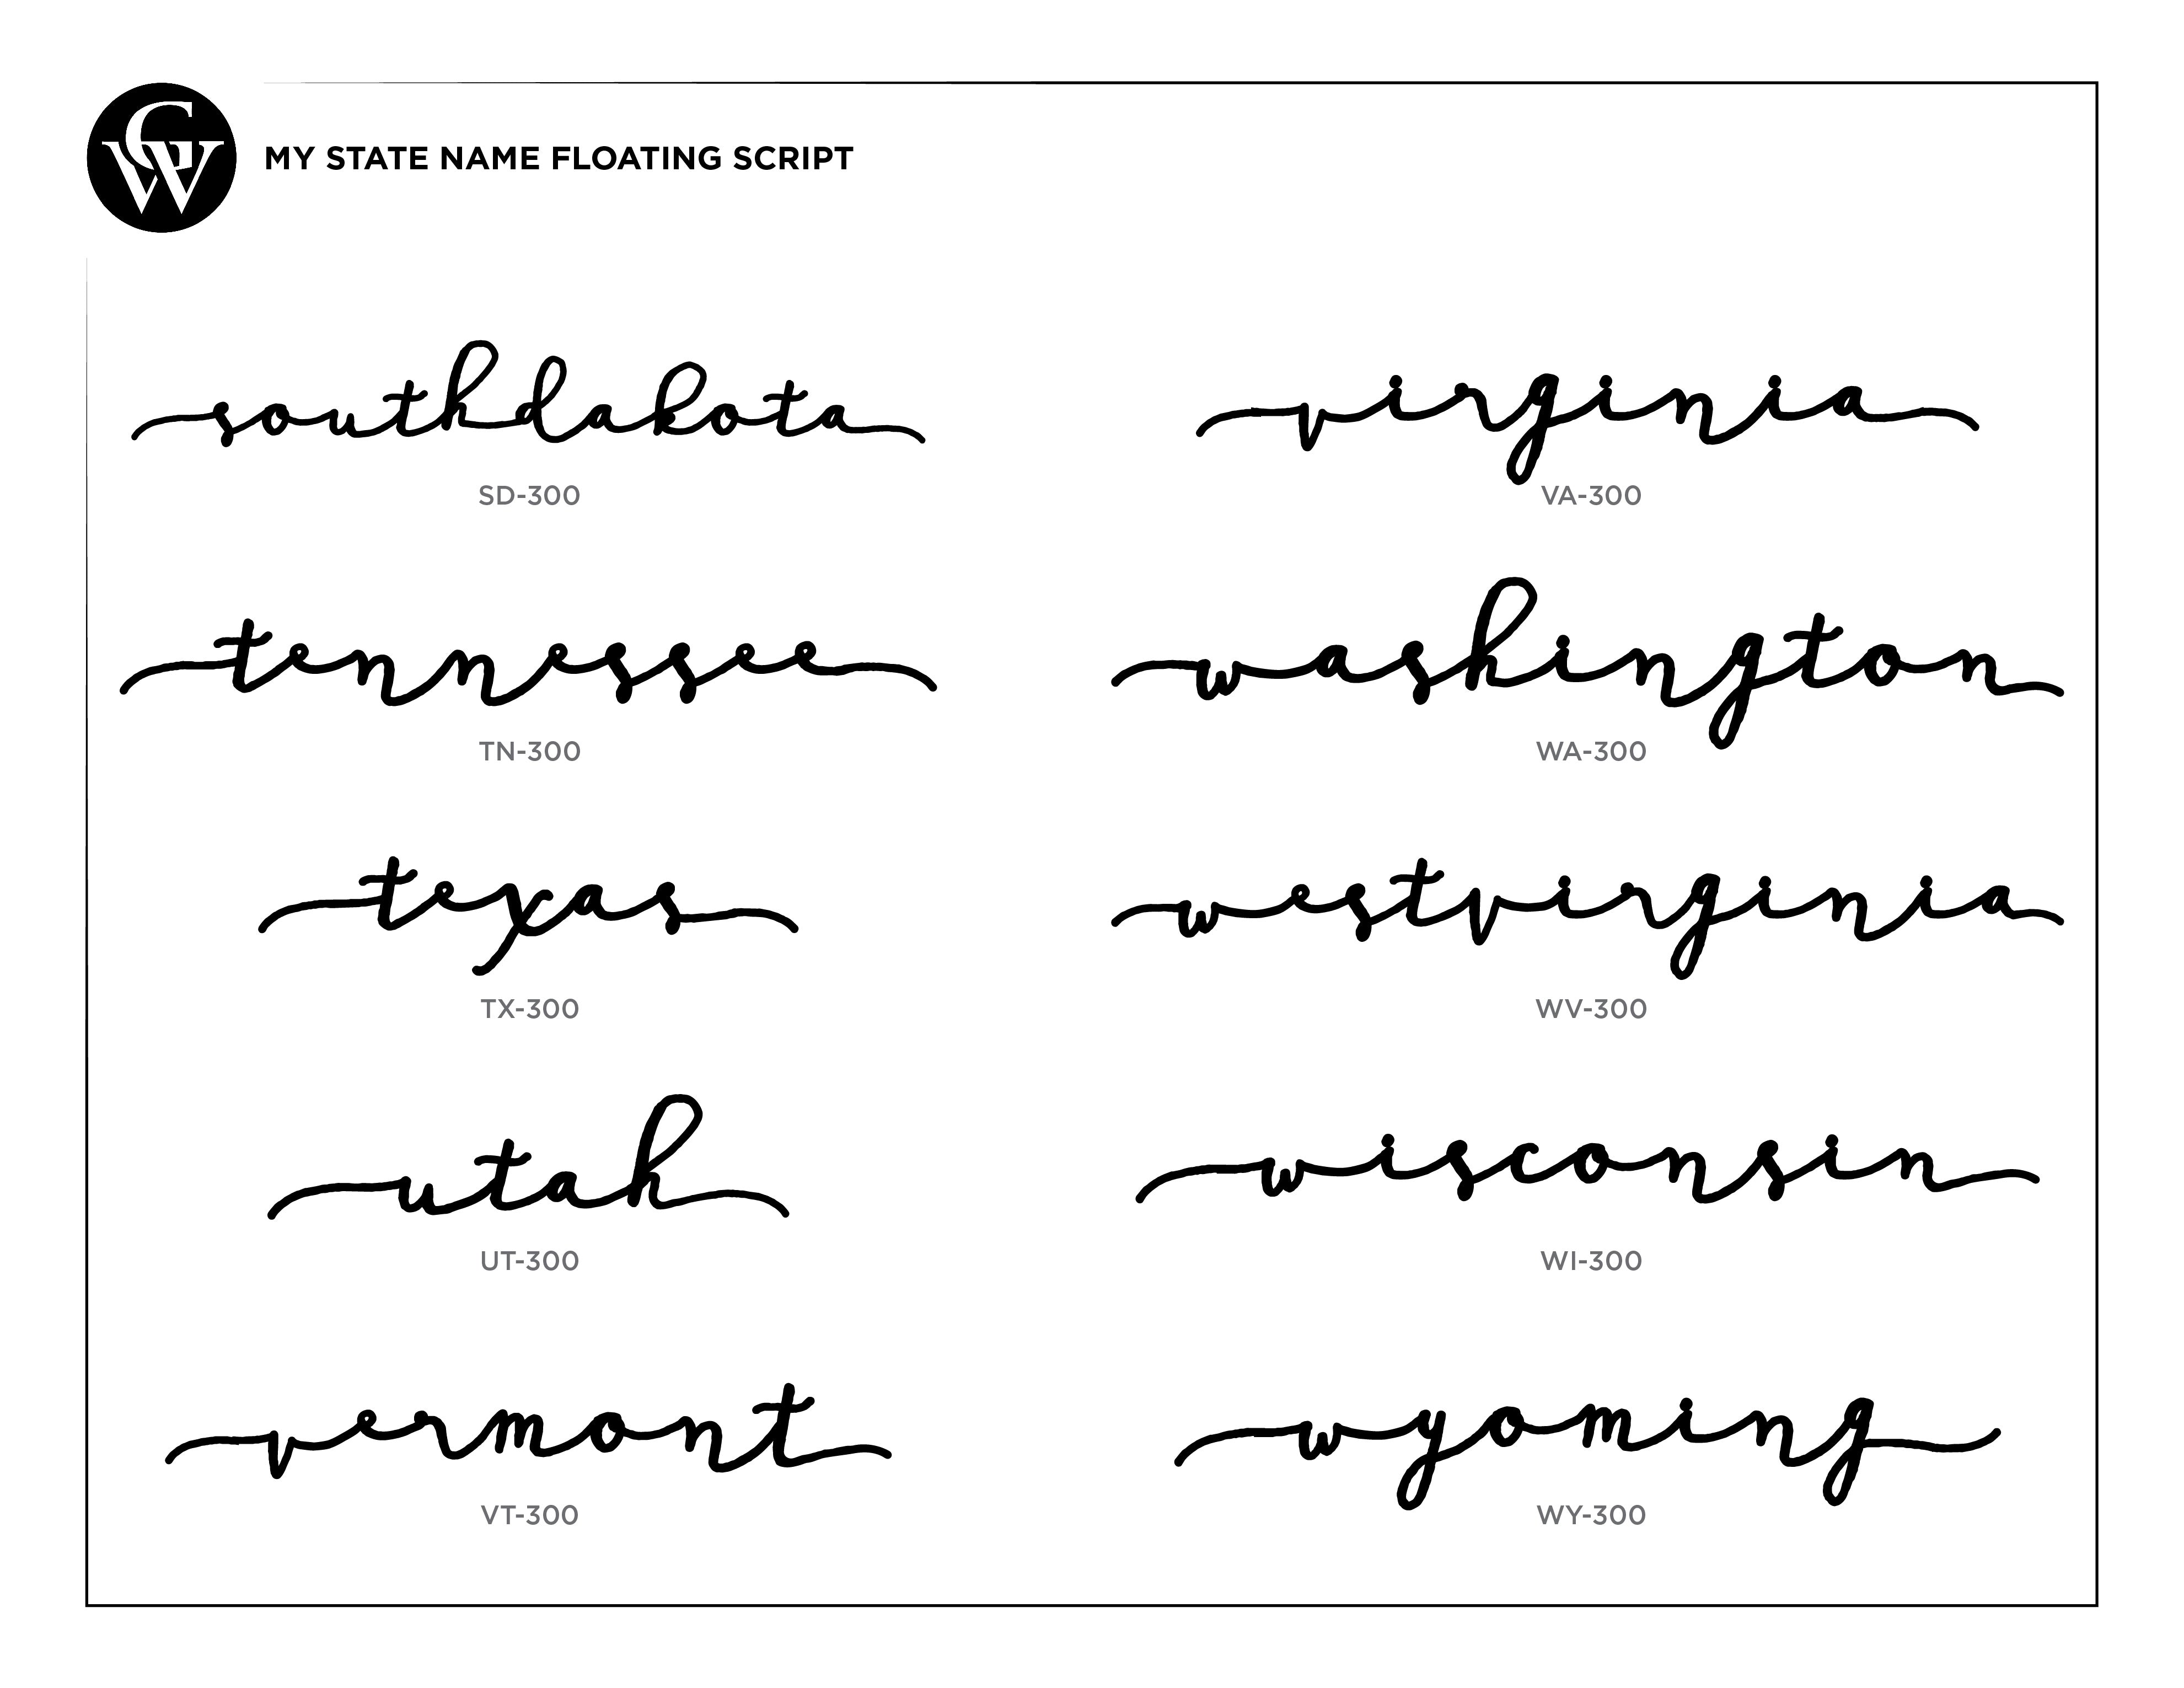 GW
MY STATE NAME FLOATING SCRIPT
southdakota
SD-300
tennessee
TN-300
texas
TX-300
utah
UT-300
vermont
VT-300
virginia
VA-300
washington
WA-300
westvirginia
WV-300
wisconsin
WI-300
wyoming
WY-300